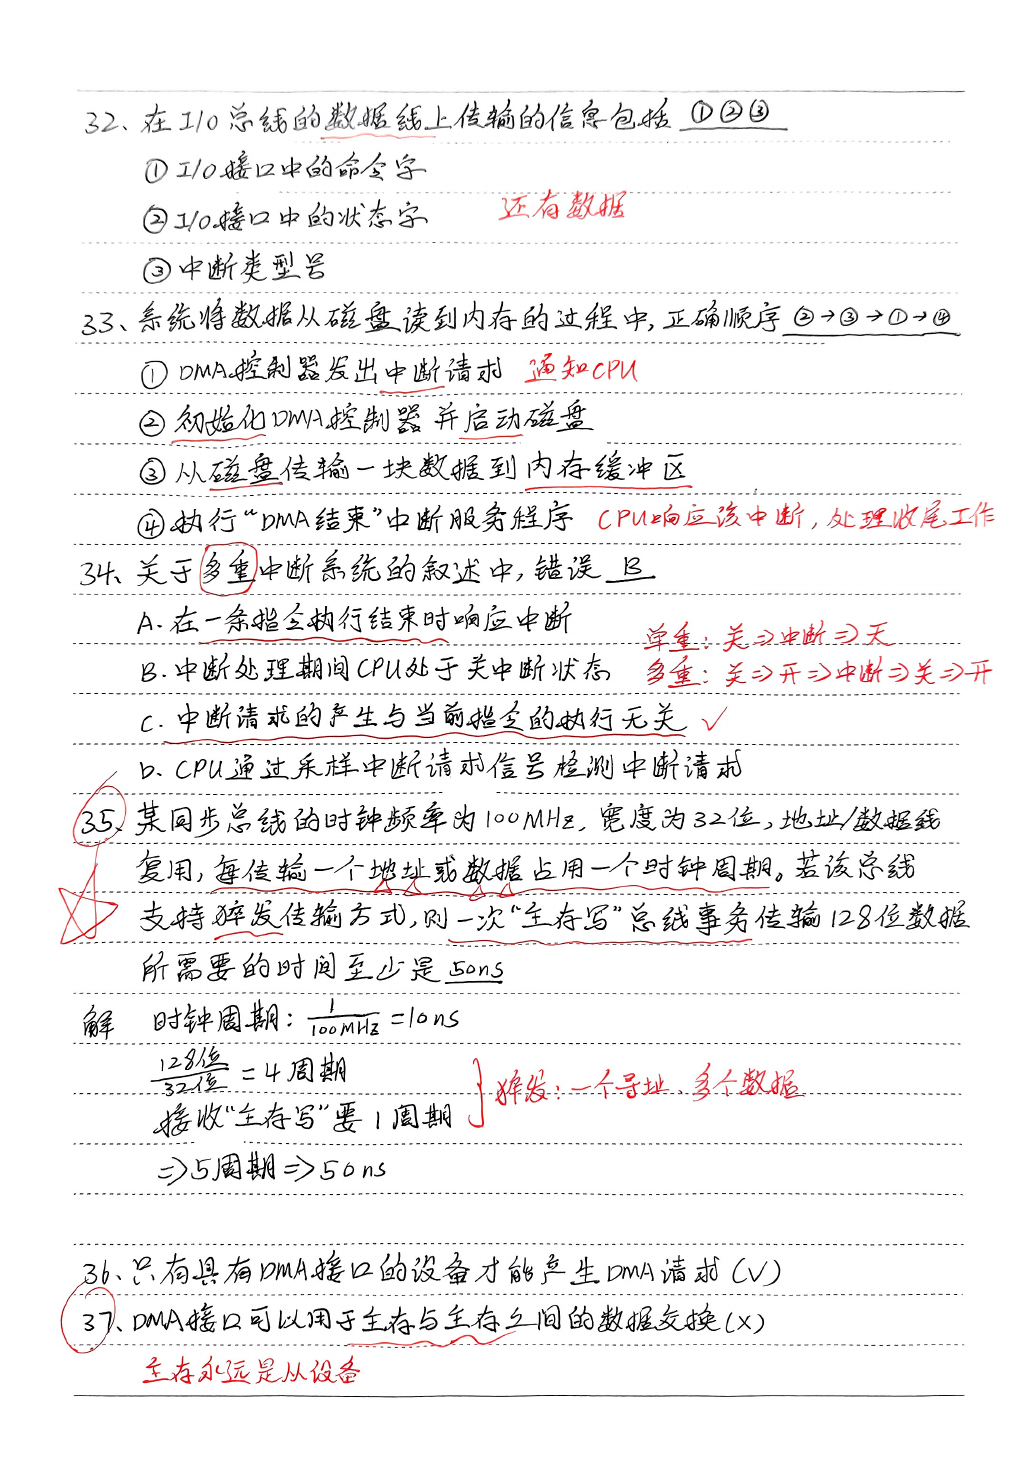 32、在I/O总线的数据线上传输的信息包括 ①②③
①I/O接口中的命令字
②I/O接口中的状态字 还有数据
③中断类型号
33、系统将数据从磁盘读到内存的过程中,正确顺序 ②→③→①→④
①DMA控制器发出中断请求 通知CPU
②初始化DMA控制器并启动磁盘
③从磁盘传输一块数据到内存缓冲区
④执行“DMA结束”中断服务程序 CPU响应该中断,处理收尾工作
34、关于多重中断系统的叙述中,错误 B
A.在一条指令执行结束时响应中断
单重:关⇒中断⇒天
B.中断处理期间CPU处于关中断状态 多重:关⇒开⇒中断⇒关⇒开
C.中断请求的产生与当前指令的执行无关 ✓
D.CPU通过采样中断请求信号检测中断请求
35、某同步总线的时钟频率为100MHz,宽度为32位,地址/数据线
复用,每传输一个地址或数据占用一个时钟周期。若该总线
支持猝发传输方式,则一次“主存写”总线事务传输128位数据
所需要的时间至少是 50ns
解 时钟周期: 1/100MHz =10ns
128位/32位 =4周期
猝发:一个寻址、多个数据
接收“主存写”要1周期
⇒5周期⇒50ns
36、只有具有DMA接口的设备才能产生DMA请求(V)
37、DMA接口可以用于主存与主存之间的数据交换(X)
主存永远是从设备